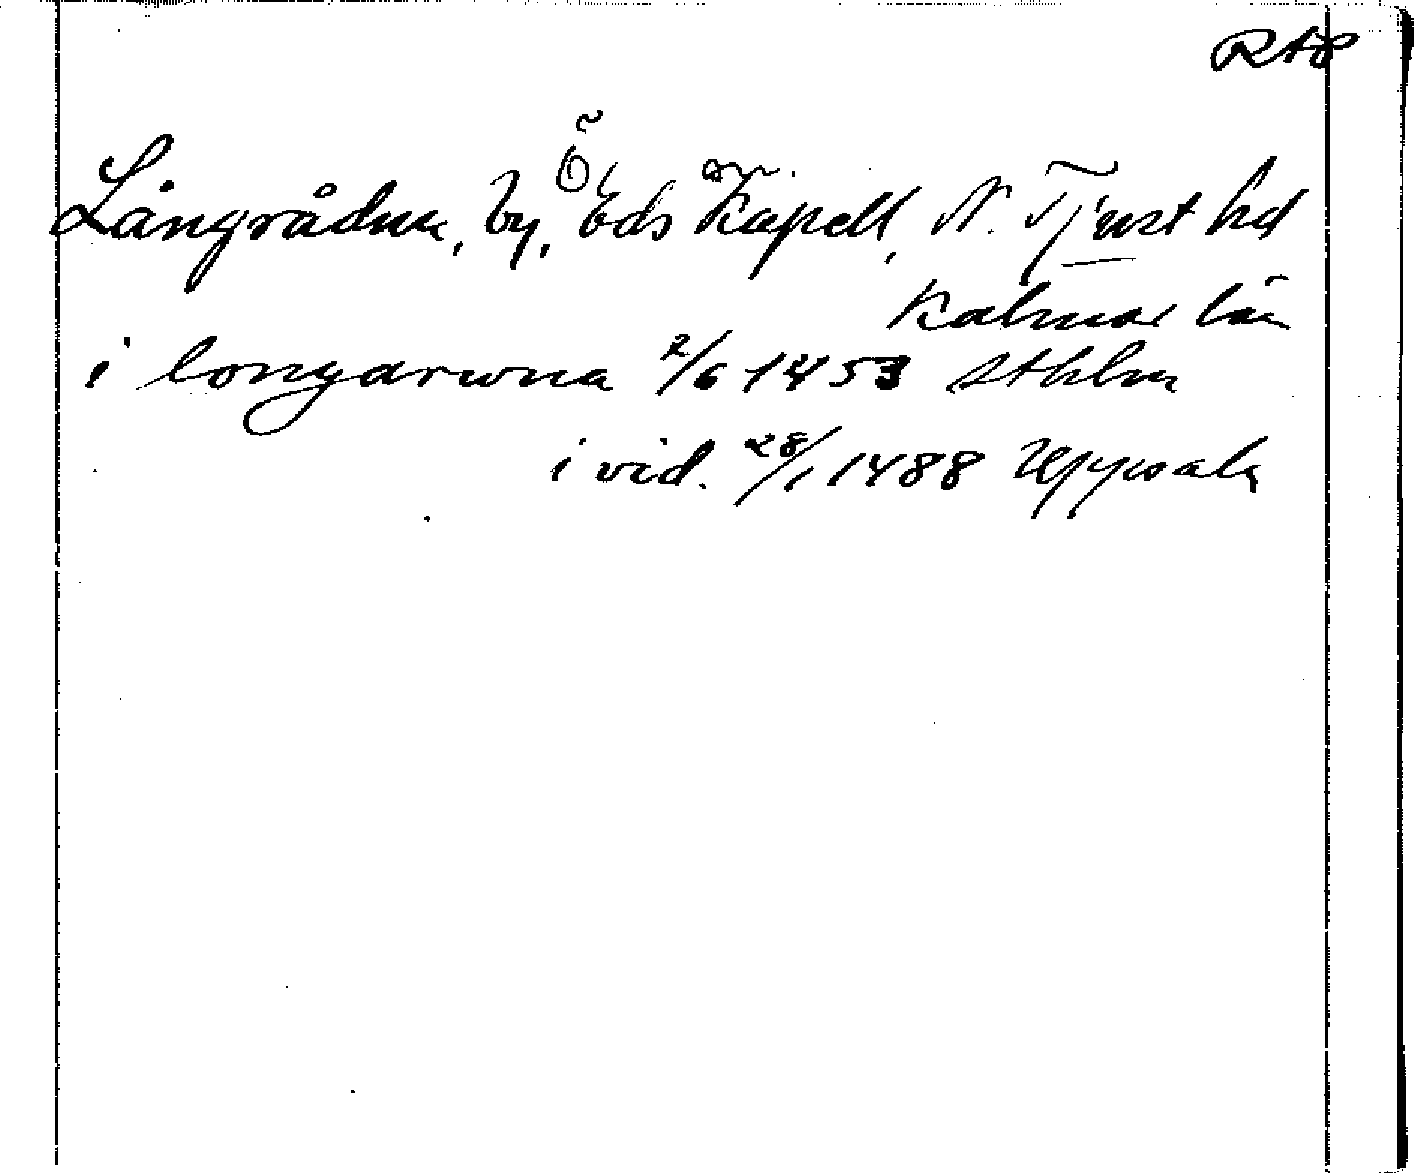 RAP
Långrådna, by, Ö. Eds Kapell, N. Tjust hd
Kalmar län
i longarwna 2/6 1453 Sthlm
i vid. 28/1 1488 Uppsala